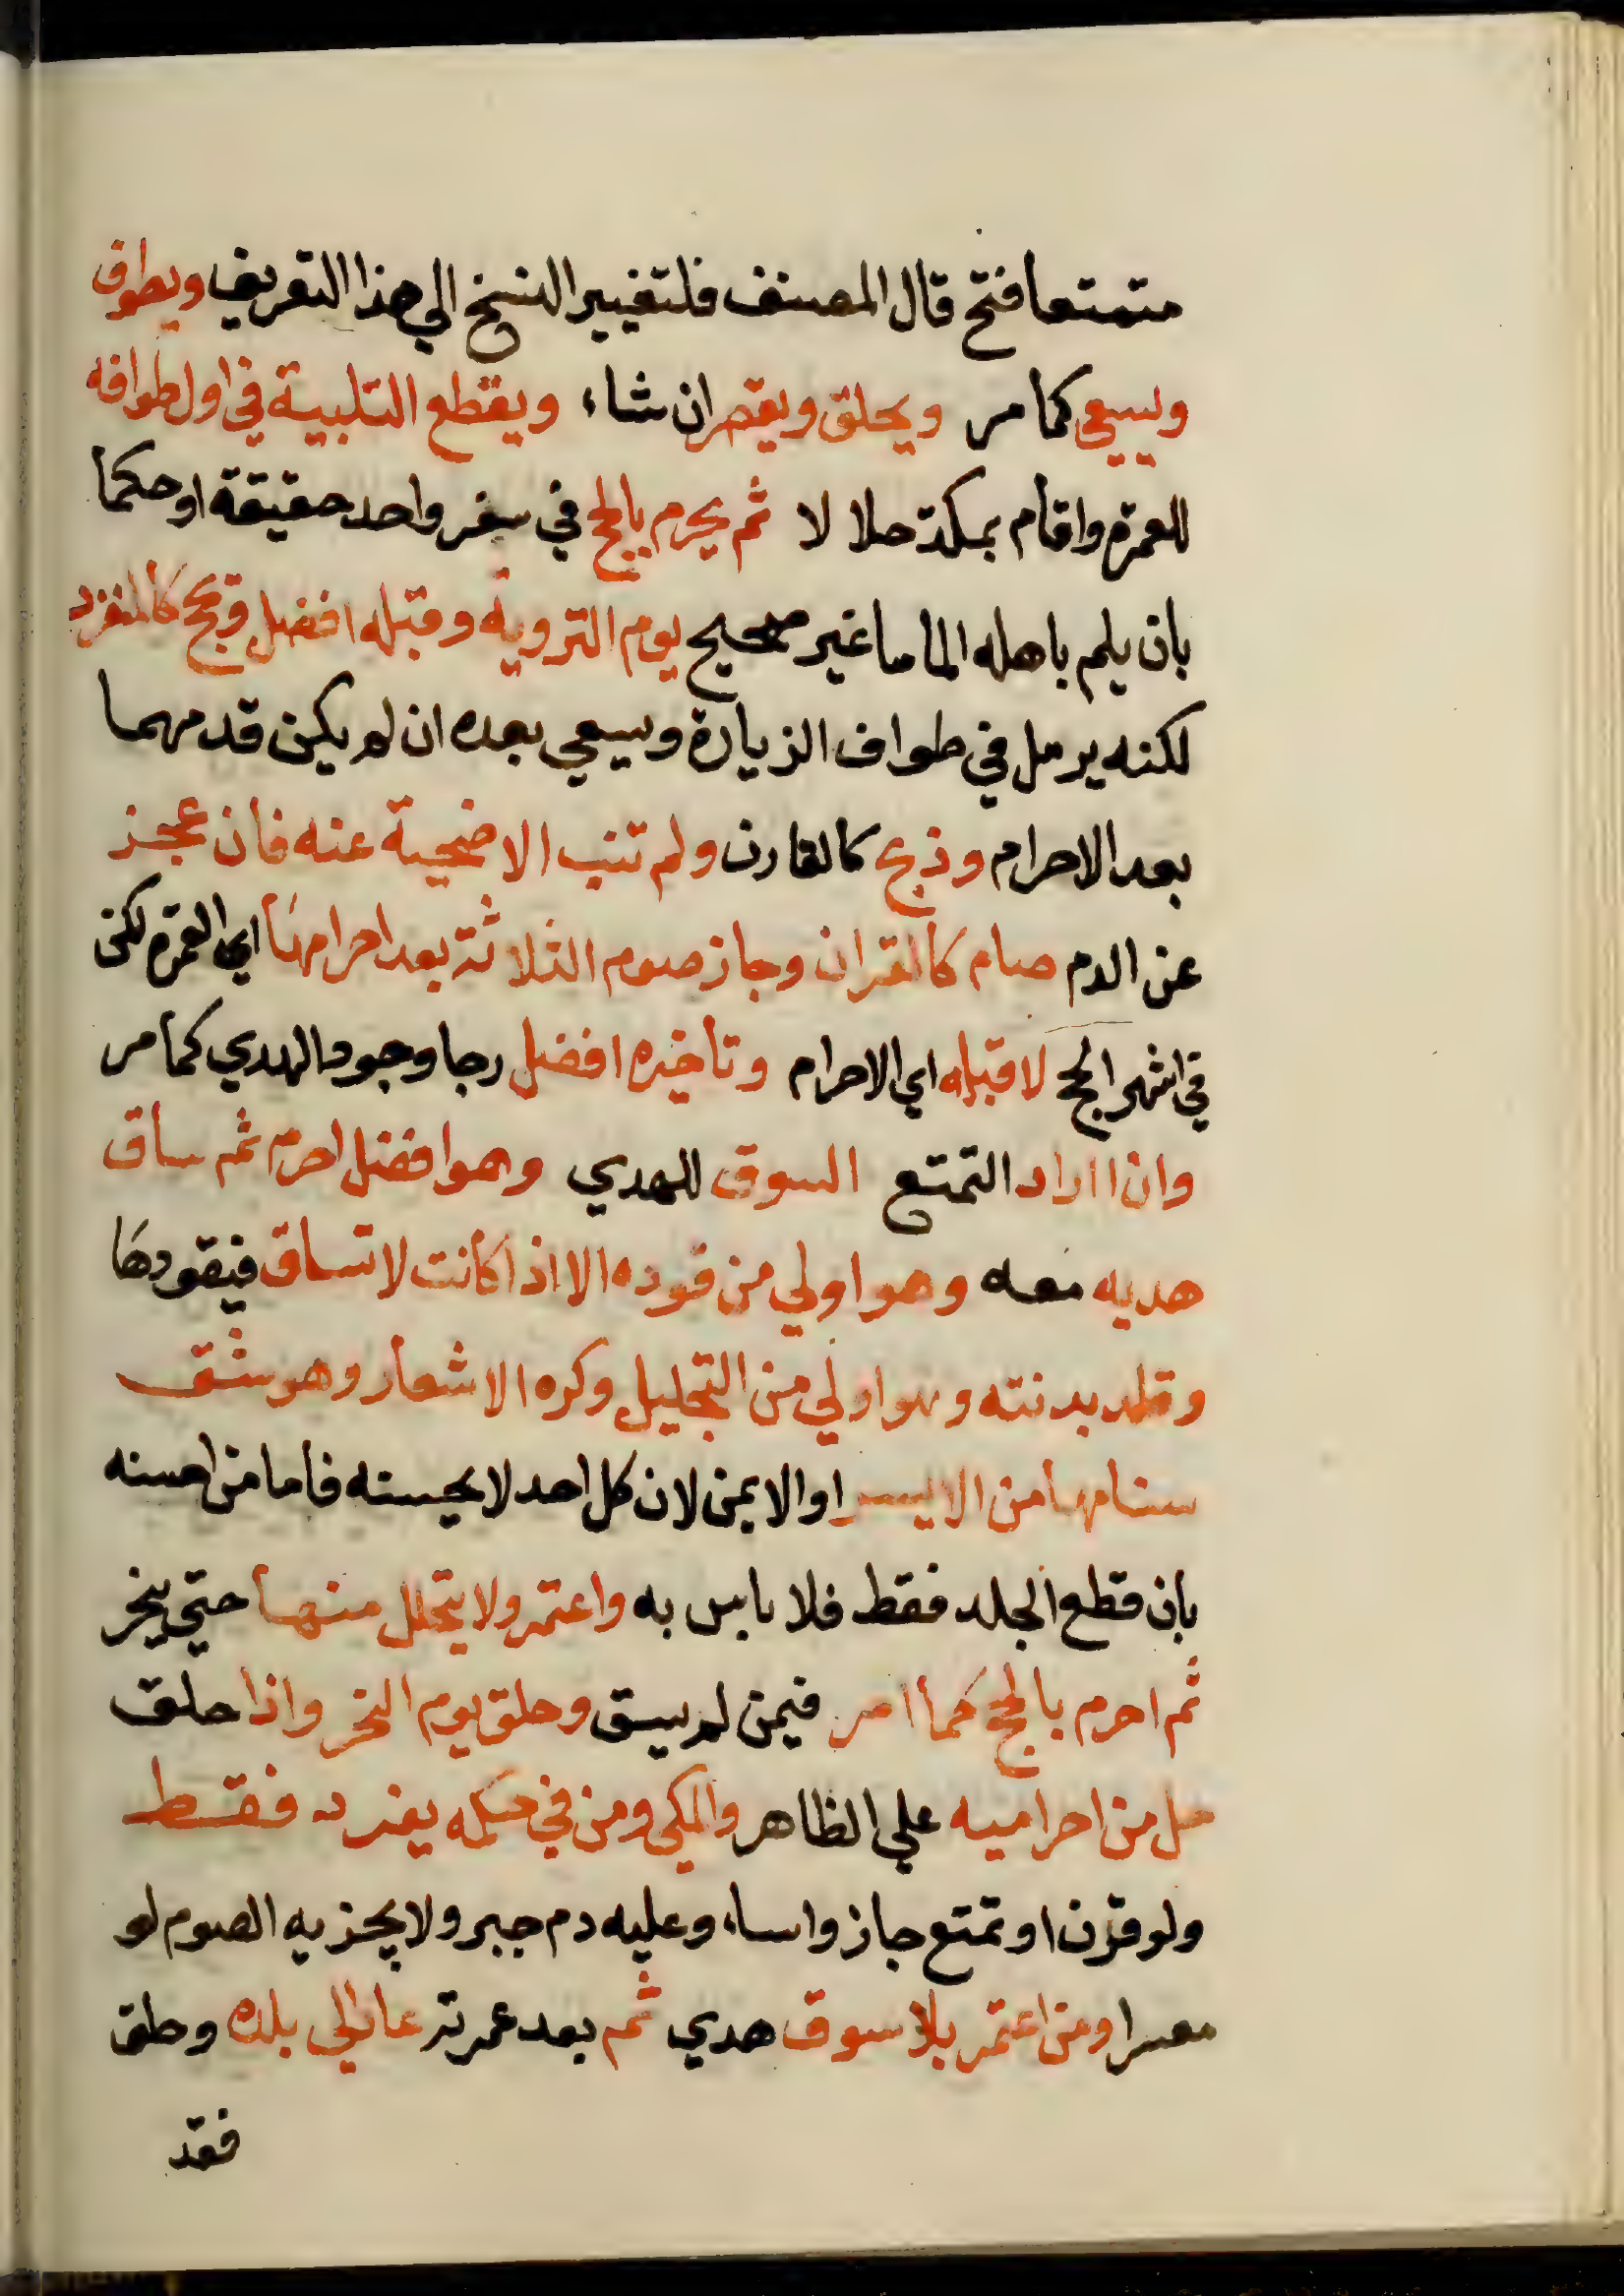 متمتعا فتح قال المصنف فلتغيير النسخ الي هذا التعريف ويطوف
ويسعي كما مر ويحلق ويقصر ان شاء ويقطع التلبية في اول طوافه
للعمرة واقام بمكة حلالا ثم يحرم بالحج في سفر واحد حقيقة او حكما
بان يلم باهله الماما غير صحيح يوم التروية وقبله افضل ويحج كالمفرد
لكنه يرمل في طواف الزيارة ويسعي بعده ان لم يكن قدمهما
بعد الاحرام وذبح كالقارن ولم تنب الاضحية عنه فان عجز
عن الدم صام كالقران وجاز صوم الثلاثة بعد احرامها اي العمرة لكن
في اشهر الحج لا قبله اي الاحرام وتاخيره افضل رجا وجود الهدي كما مر
وان اراد التمتع السوق للهدي وهو افضل احرم ثم ساق
هديه معه وهو اولي من قوده الا اذا كانت لا تساق فيقودها
وقلد بدنته وهو اولي من التجليل وكره الاشعار وهو شق
سنامها من الايسر او الايمن لان كل احد لا يحسنه فاما من احسنه
بان قطع الجلد فقط فلا باس به واعتمر ولا يتحلل منها حتي ينحر
ثم احرم بالحج كما مر فيمن لم يسق وحلق يوم النحر واذا حلق
حل من احراميه علي الظاهر والمكي ومن في حكمه يفرد فقط
ولو قرن او تمتع جاز واساء وعليه دم جبر ولا يجزيه الصوم لو
معسرا ومن اعتمر بلا سوق هدي ثم بعد عمرته عاد الي بلده وحلق
فقد